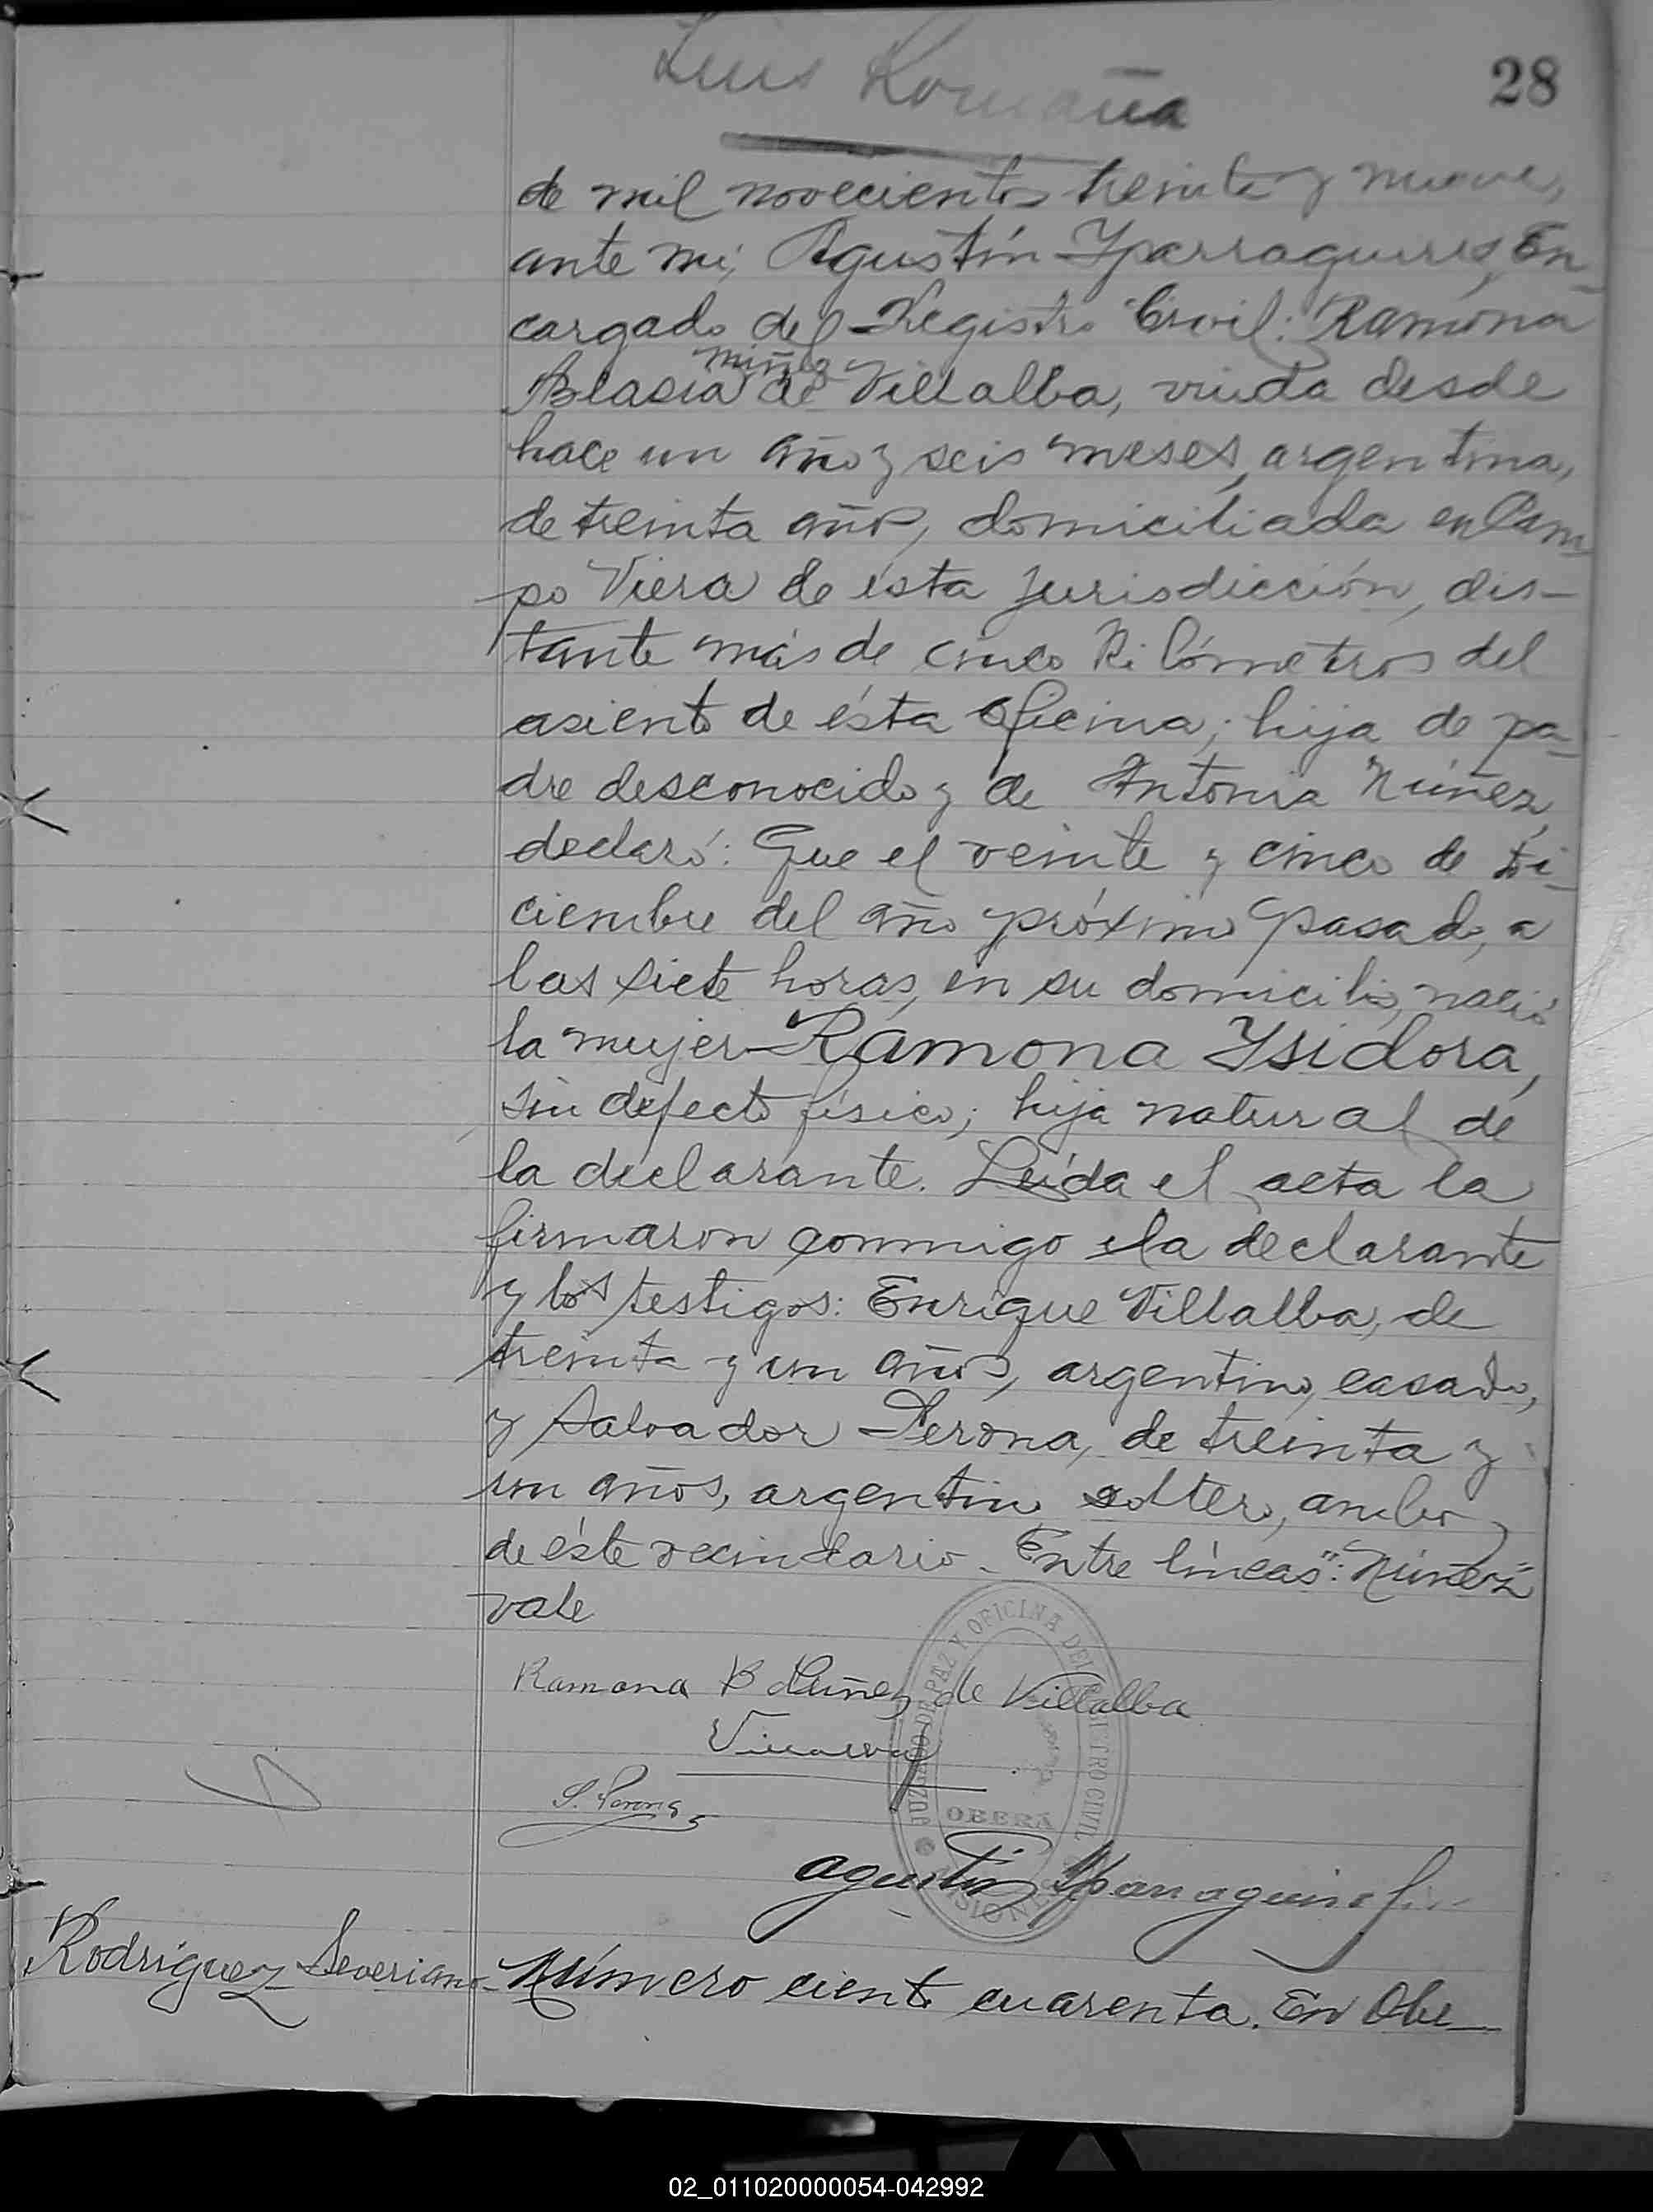 Luis Romaña
28
de mil novecientos treinta y nueve,
ante mí, Agustín Yparraguirre, En-
cargado del Registro Civil: Ramona
Núñez
Blasia de Villalba, viuda desde
hace un año y seis meses, argentina,
de treinta años, domiciliada en Cam-
po Viera de ésta jurisdicción, dis-
tante más de cinco kilómetros del
asiento de ésta Oficina; hija de pa-
dre desconocido y de Antonia Núñez,
declaró: Que el veinte y cinco de Di-
ciembre del año próximo pasado, a
las siete horas, en su domicilio, nació
la mujer Ramona Ysidora,
sin defecto físico; hija natural de
la declarante. Leída el acta la
firmaron conmigo la declarante
y los testigos: Enrique Villalba, de
treinta y un años, argentino, casado,
y Salvador Perona, de treinta y
un años, argentino, soltero, ambos
de éste vecindario. Entre líneas": Núñez"
vale
Ramona B Núñez de Villalba
S. Perona
JUZGADO DE PAZ Y OFICINA DEL REGISTRO CIVIL
OBERÁ
MISIONES
Agustín Yparraguirre
Rodríguez Severiano
Número ciento cuarenta. En Obe-
02_011020000054-042992